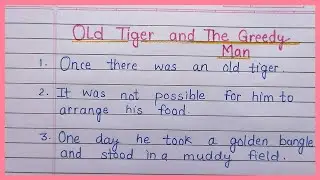 Old Tiger and The Greedy
Man
1. Once there was an old tiger.
2. It was not possible for him to
arrange his food.
3. One day he took a golden bangle
and stood in a muddy field.